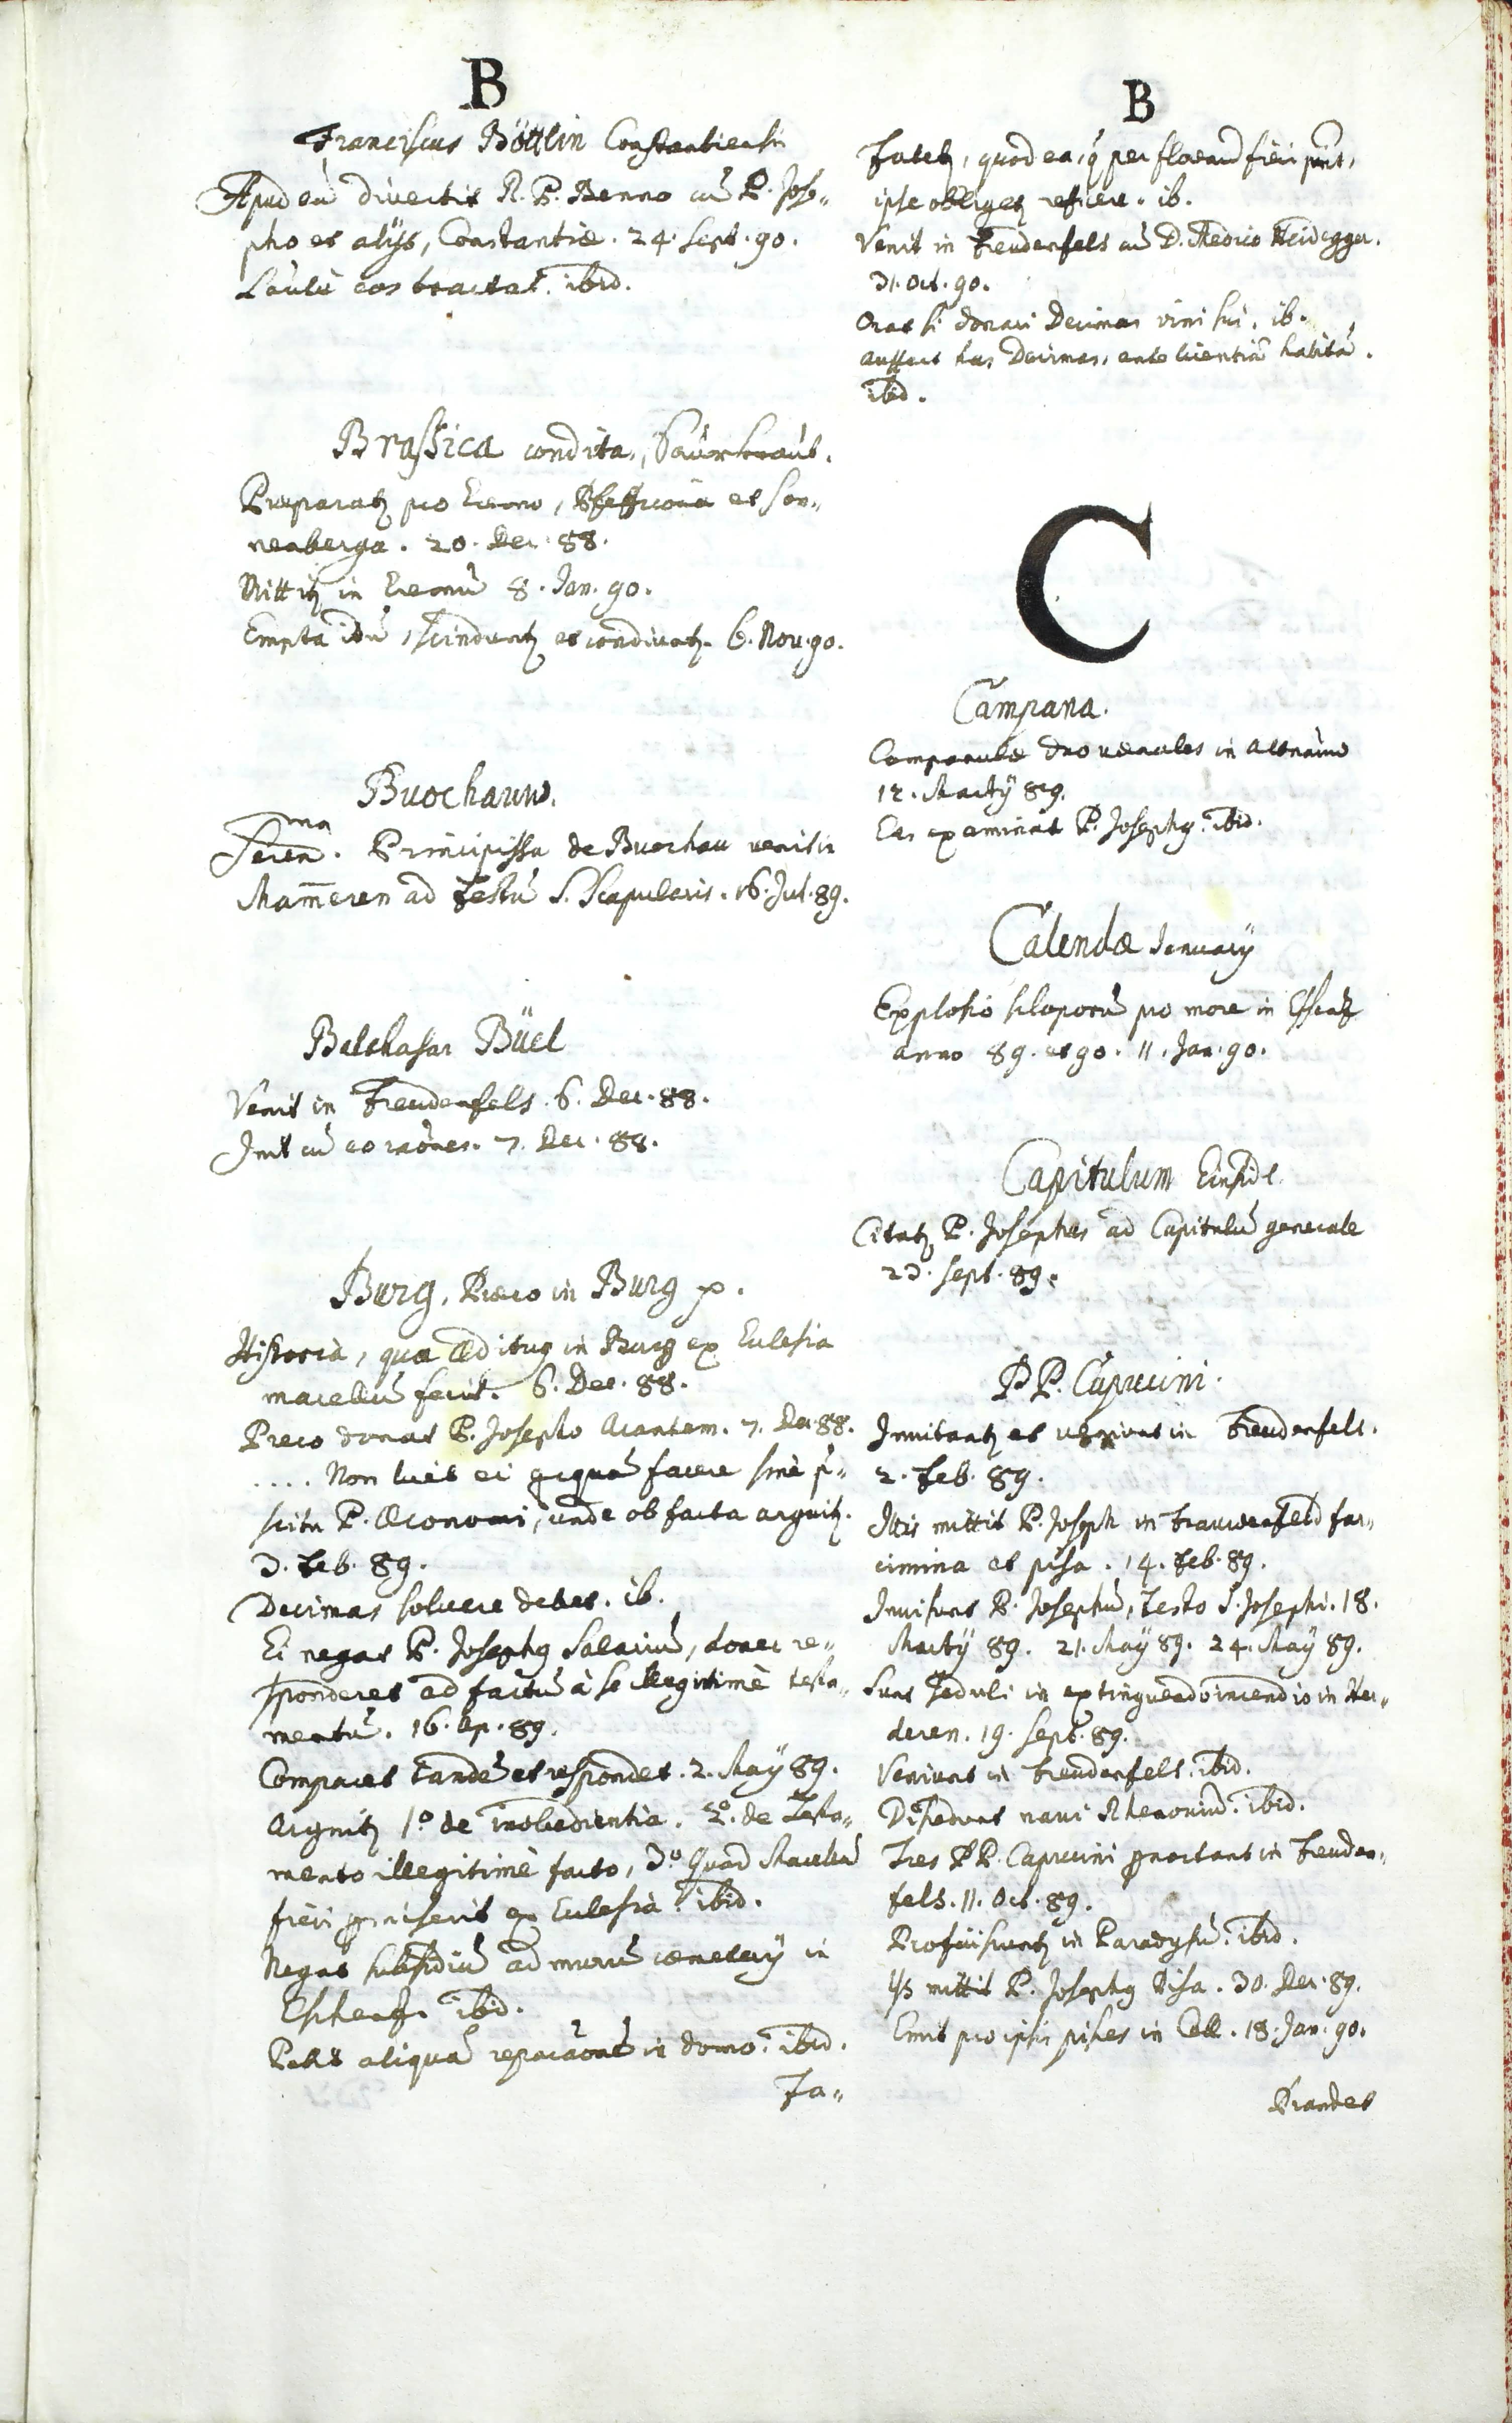 B
Franciscus Böttlin Constantiensis
Apud eū divertit R. P. Benno cū P. Jose-
pho et alijs, Constantiæ. 24. Sept. 90.
Lautè eos tractat. ibid.
Brassica condita, Saurkraut.
Præparatʒ pro Eremo, Pfefficona et Son-
nenberga. 20. Dec. 88.
Mittitʒ in Eremū 8. Jan. 90.
Empta itū, scinduntʒ et condiuntʒ. 6. Nov. 90.
Buochauw.
Seren.ma Principissa de Buochau venit in
Mam̄eren ad festū S. Scapularis. 16. Jul. 89.
Balthasar Büel
Venit in Freudenfels. 6. Dec. 88.
Init cū eo raōnes. 7. Dec. 88.
Burg, Præco in Burg p.
Historia, quæ Ædituꝰ in Burg ex Ecclesia
macellū fecit. 6. Dec. 88.
Preco donat P. Josepho Acantem. 7. Dec. 88.
.... Non licet ei quiquā facere sine
scitu P. Œconomi, unde ob facta arguitʒ.
3. Feb. 89.
Decimas solvere debet. ib.
Ei negat P. Josephꝰ Salariū, donec re-
sponderet ad factū à se illegitimè testa-
mentū. 16. Ap. 89.
Comparet tandē et respondet. 2. Maÿ 89.
Arguitʒ 1.º de inobedientia. 2.º de Testa-
mento illegitimè facto, 3.º Quod Macellū
fieri pmiserit ex Ecclesia. ibid.
Negat subsidiū ad murū cœmeterÿ in
Eschenz. ibid.
Petit aliquā reparaōnē in domo. ibid.
Fa-
B
Fatetʒ, quod ea, q̄ per fieri pn̄t,
ipse obligetʒ reficere. ib.
Venit in Freudenfels cū D. Medico Heidegger.
31. Oct. 90.
Orat si donari Decimas vini sui. ib.
Aufert has Decimas, ante licentiā habitā.
ibid.
C
Campana.
Campanulæ duo venales in
12. Martÿ 89.
Eas examinat P. Josephꝰ. ibid.
Calendæ Januarÿ
Explosio scloporū pro more in Eschenz
anno 89. et 90. 11. Jan. 90.
Capitulum Einsidl.
Citatʒ P. Josephus ad Capitulū generale
23. Sept. 89.
P P. Capucini.
Invitantʒ et veniunt in Freudenfels.
2. Feb. 89.
Illis mittit P. Joseph in Frauwenfeld far-
cimina et pisa. 14. Feb. 89.
Invisunt P. Josephū, Festo S. Josephi. 18.
Martÿ 89. 21. Maÿ 89. 24. Maÿ 89.
Sunt seduli in extinguendo incendio in Her-
deren. 19. Sept. 89.
Veniunt in Freudenfels. ibid.
Discedunt navi Rhenoniū. ibid.
Tres P P. Capucini pnoctant in Freuden-
fels. 11. Oct. 89.
Proficiscuntʒ in Paradysū. ibid.
Ijs mittit P. Josephꝰ Pisa. 30. Dec. 89.
Emit pro ipsis pisces in Cell. 18. Jan. 90.
Prandet